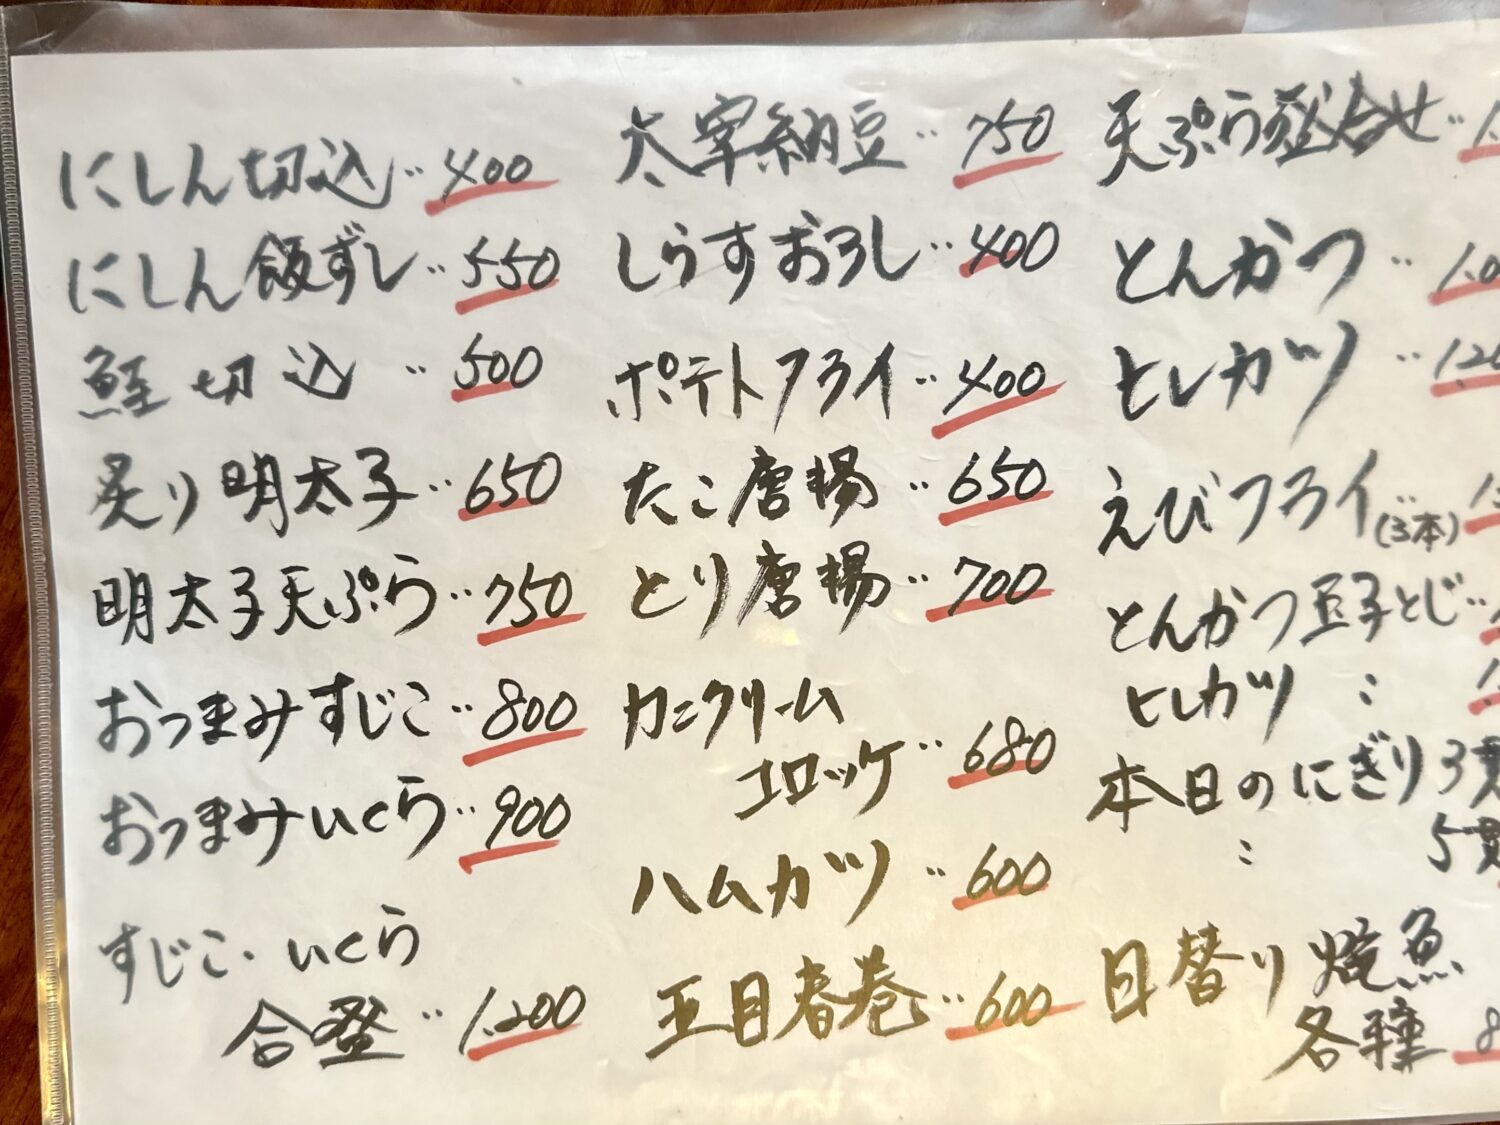 にしん切込‥400
にしん飯ずし‥550
鮭切込‥500
炙り明太子‥650
明太子天ぷら‥750
おつまみすじこ‥800
おつまみいくら‥900
すじこ・いくら
合盛‥1,200
太宰納豆‥750
しらすおろし‥400
ポテトフライ‥400
たこ唐揚‥650
とり唐揚‥700
カニクリーム
コロッケ‥680
ハムカツ‥600
五目春巻‥600
天ぷら盛合せ‥
とんかつ‥
ヒレカツ‥
えびフライ(3本)‥
とんかつ玉子とじ‥
ヒレカツ 〃
本日のにぎり3貫
〃 5貫
日替り焼魚
各種